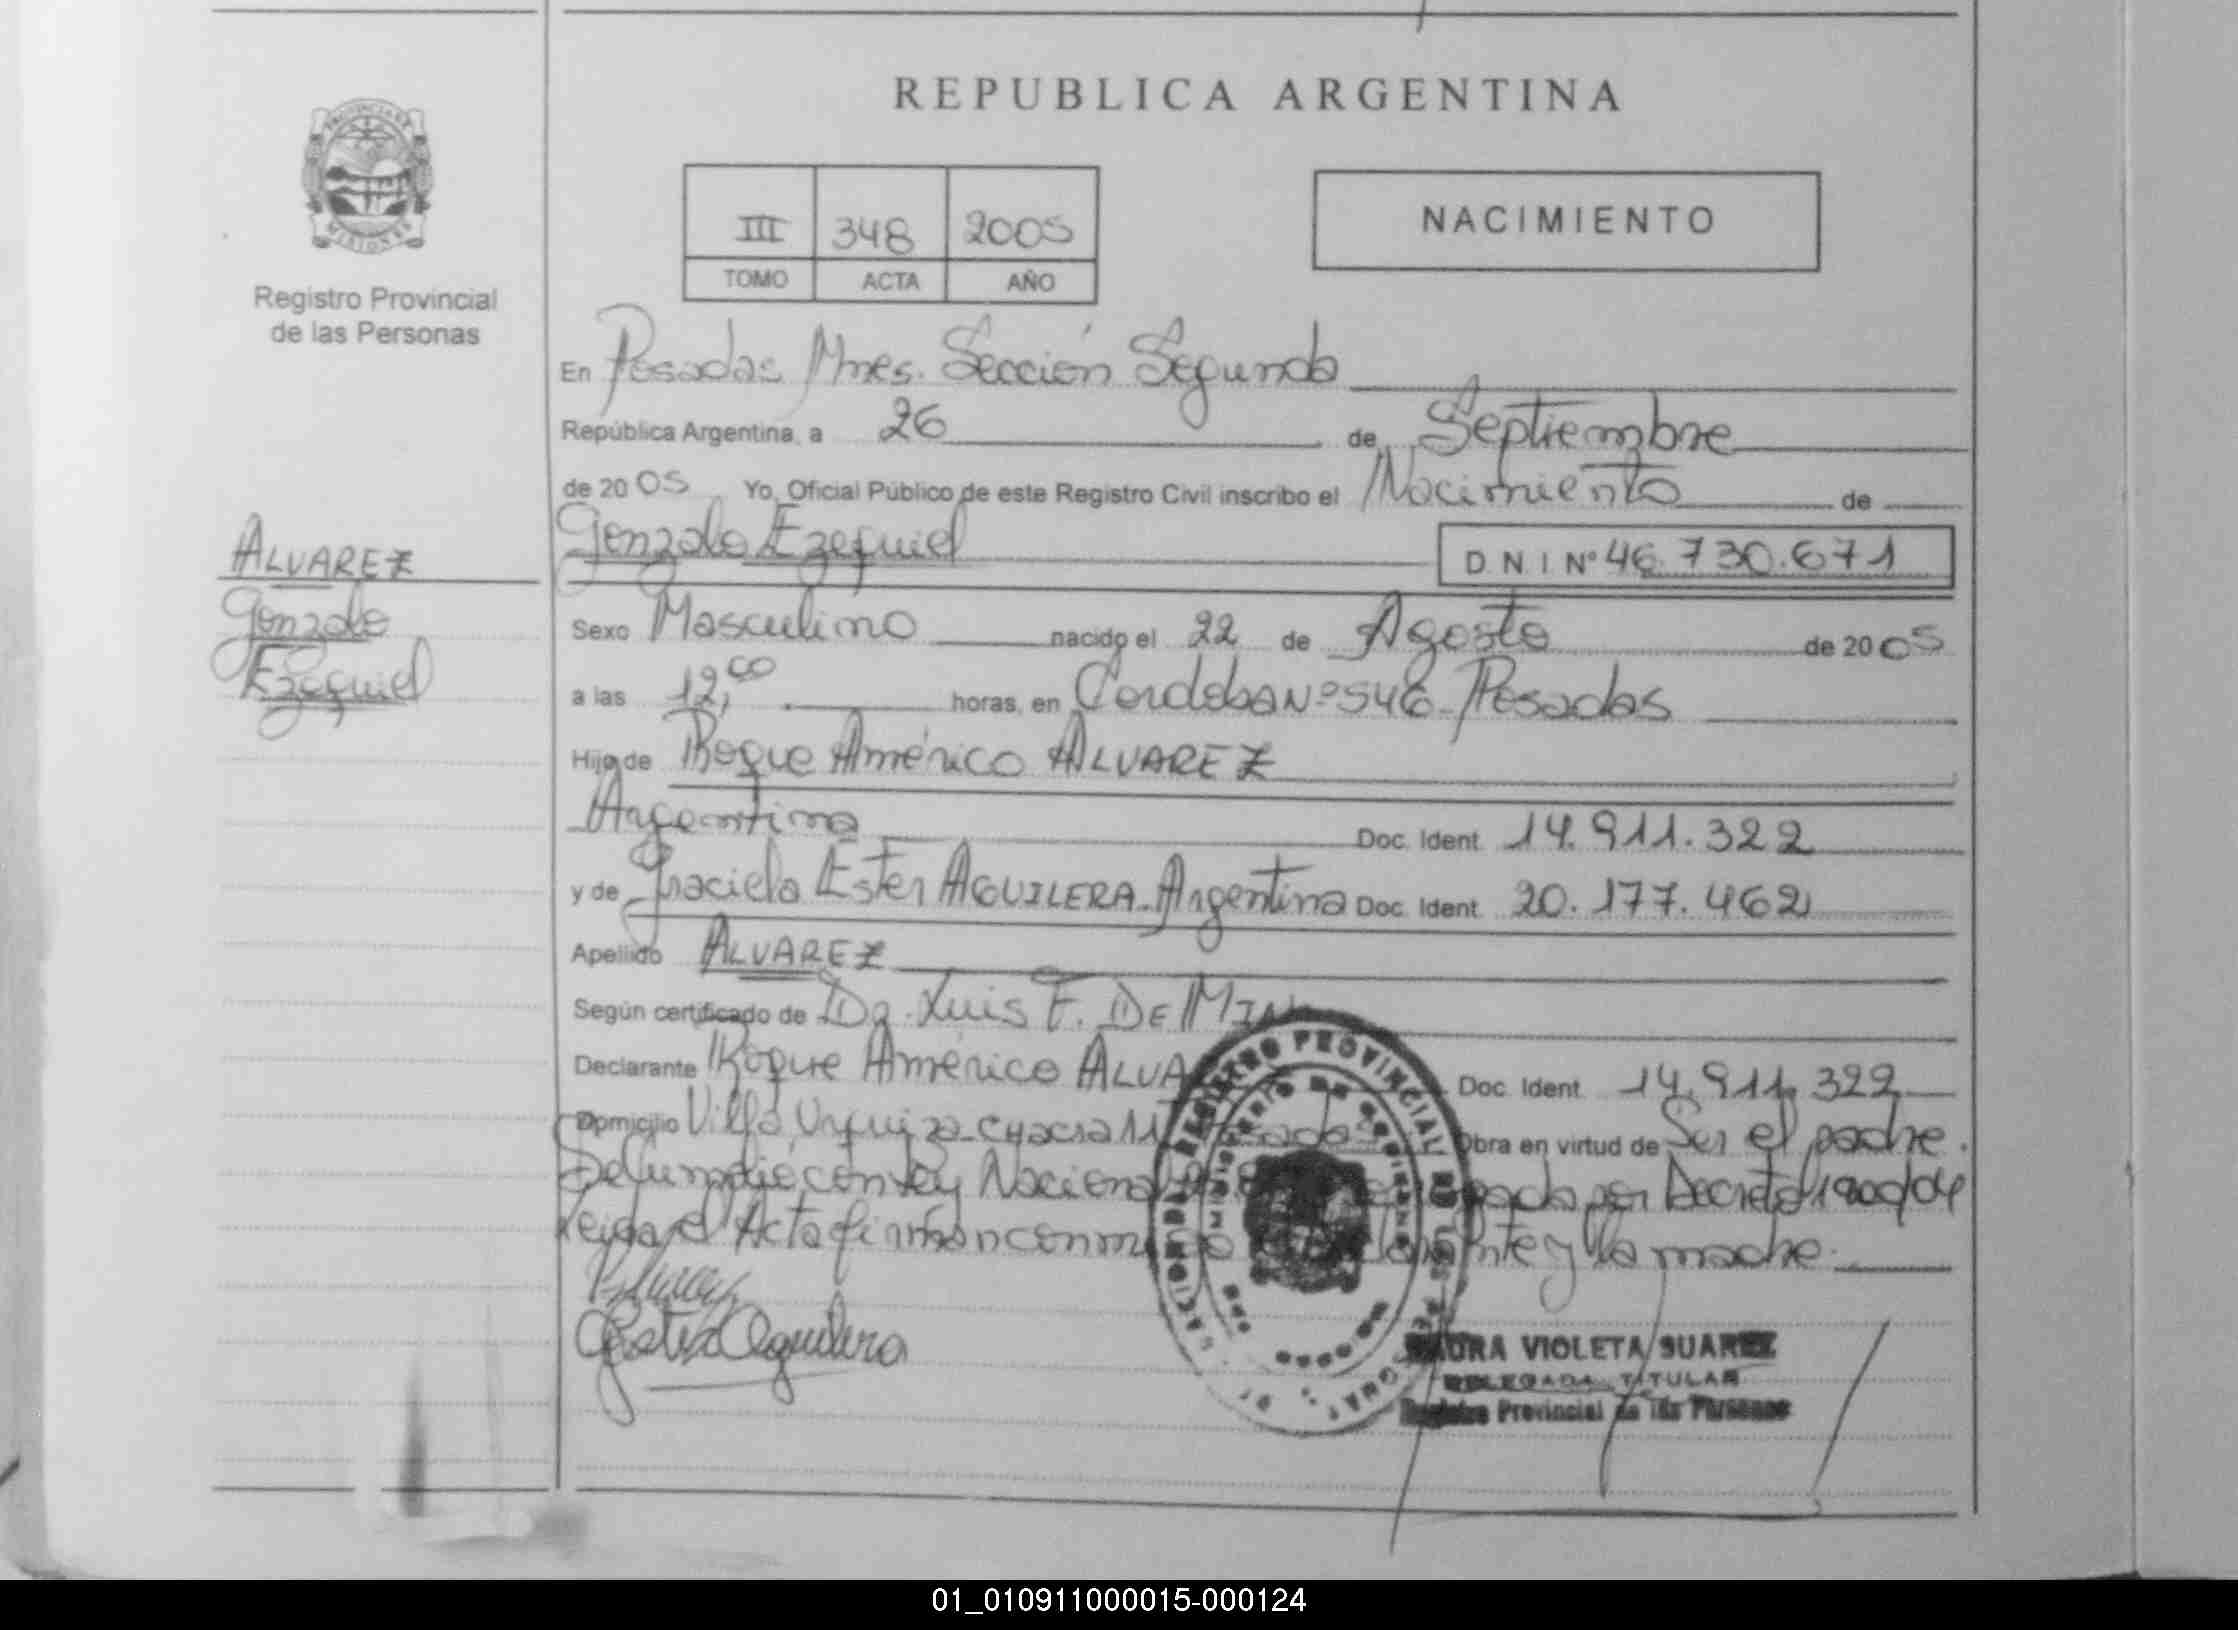 REPUBLICA ARGENTINA
PROVINCIA DE
MISIONES
Registro Provincial
de las Personas
III 348 2005
TOMO ACTA AÑO
NACIMIENTO
En Posadas Mnes. Sección Segunda
República Argentina, a 26 de Septiembre
de 2005 Yo, Oficial Público de este Registro Civil inscribo el Nacimiento de
Gonzalo Ezequiel D.N.I Nº 46.730.671
ALVAREZ
Gonzalo
Ezequiel
Sexo Masculino nacido el 22 de Agosto de 2005
a las 12,00 horas, en Cordoba Nº 546 - Posadas
Hijo de Roque Américo ALVAREZ
Argentina Doc. Ident. 14.911.322
y de Graciela Ester AGUILERA - Argentina Doc. Ident. 20.177.462
Apellido ALVAREZ
Según certificado de Dr. Luis F. DE MIN
Declarante Roque Américo ALVA Doc. Ident. 14.911.322
Domicilio Villa Urquiza - chacra 11 Obra en virtud de Ser el padre.
Se cumplió con Ley Nacional por Decreto 1900/04
Leida el Acta firman conmigo el declarante y la madre.
REGISTRO PROVINCIAL DE LAS
MINISTERIO DE GOBIERNO
Ester Aguilera
VIOLETA SUAREZ
DELEGADA TITULAR
Registro Provincial de las Personas
01_010911000015-000124